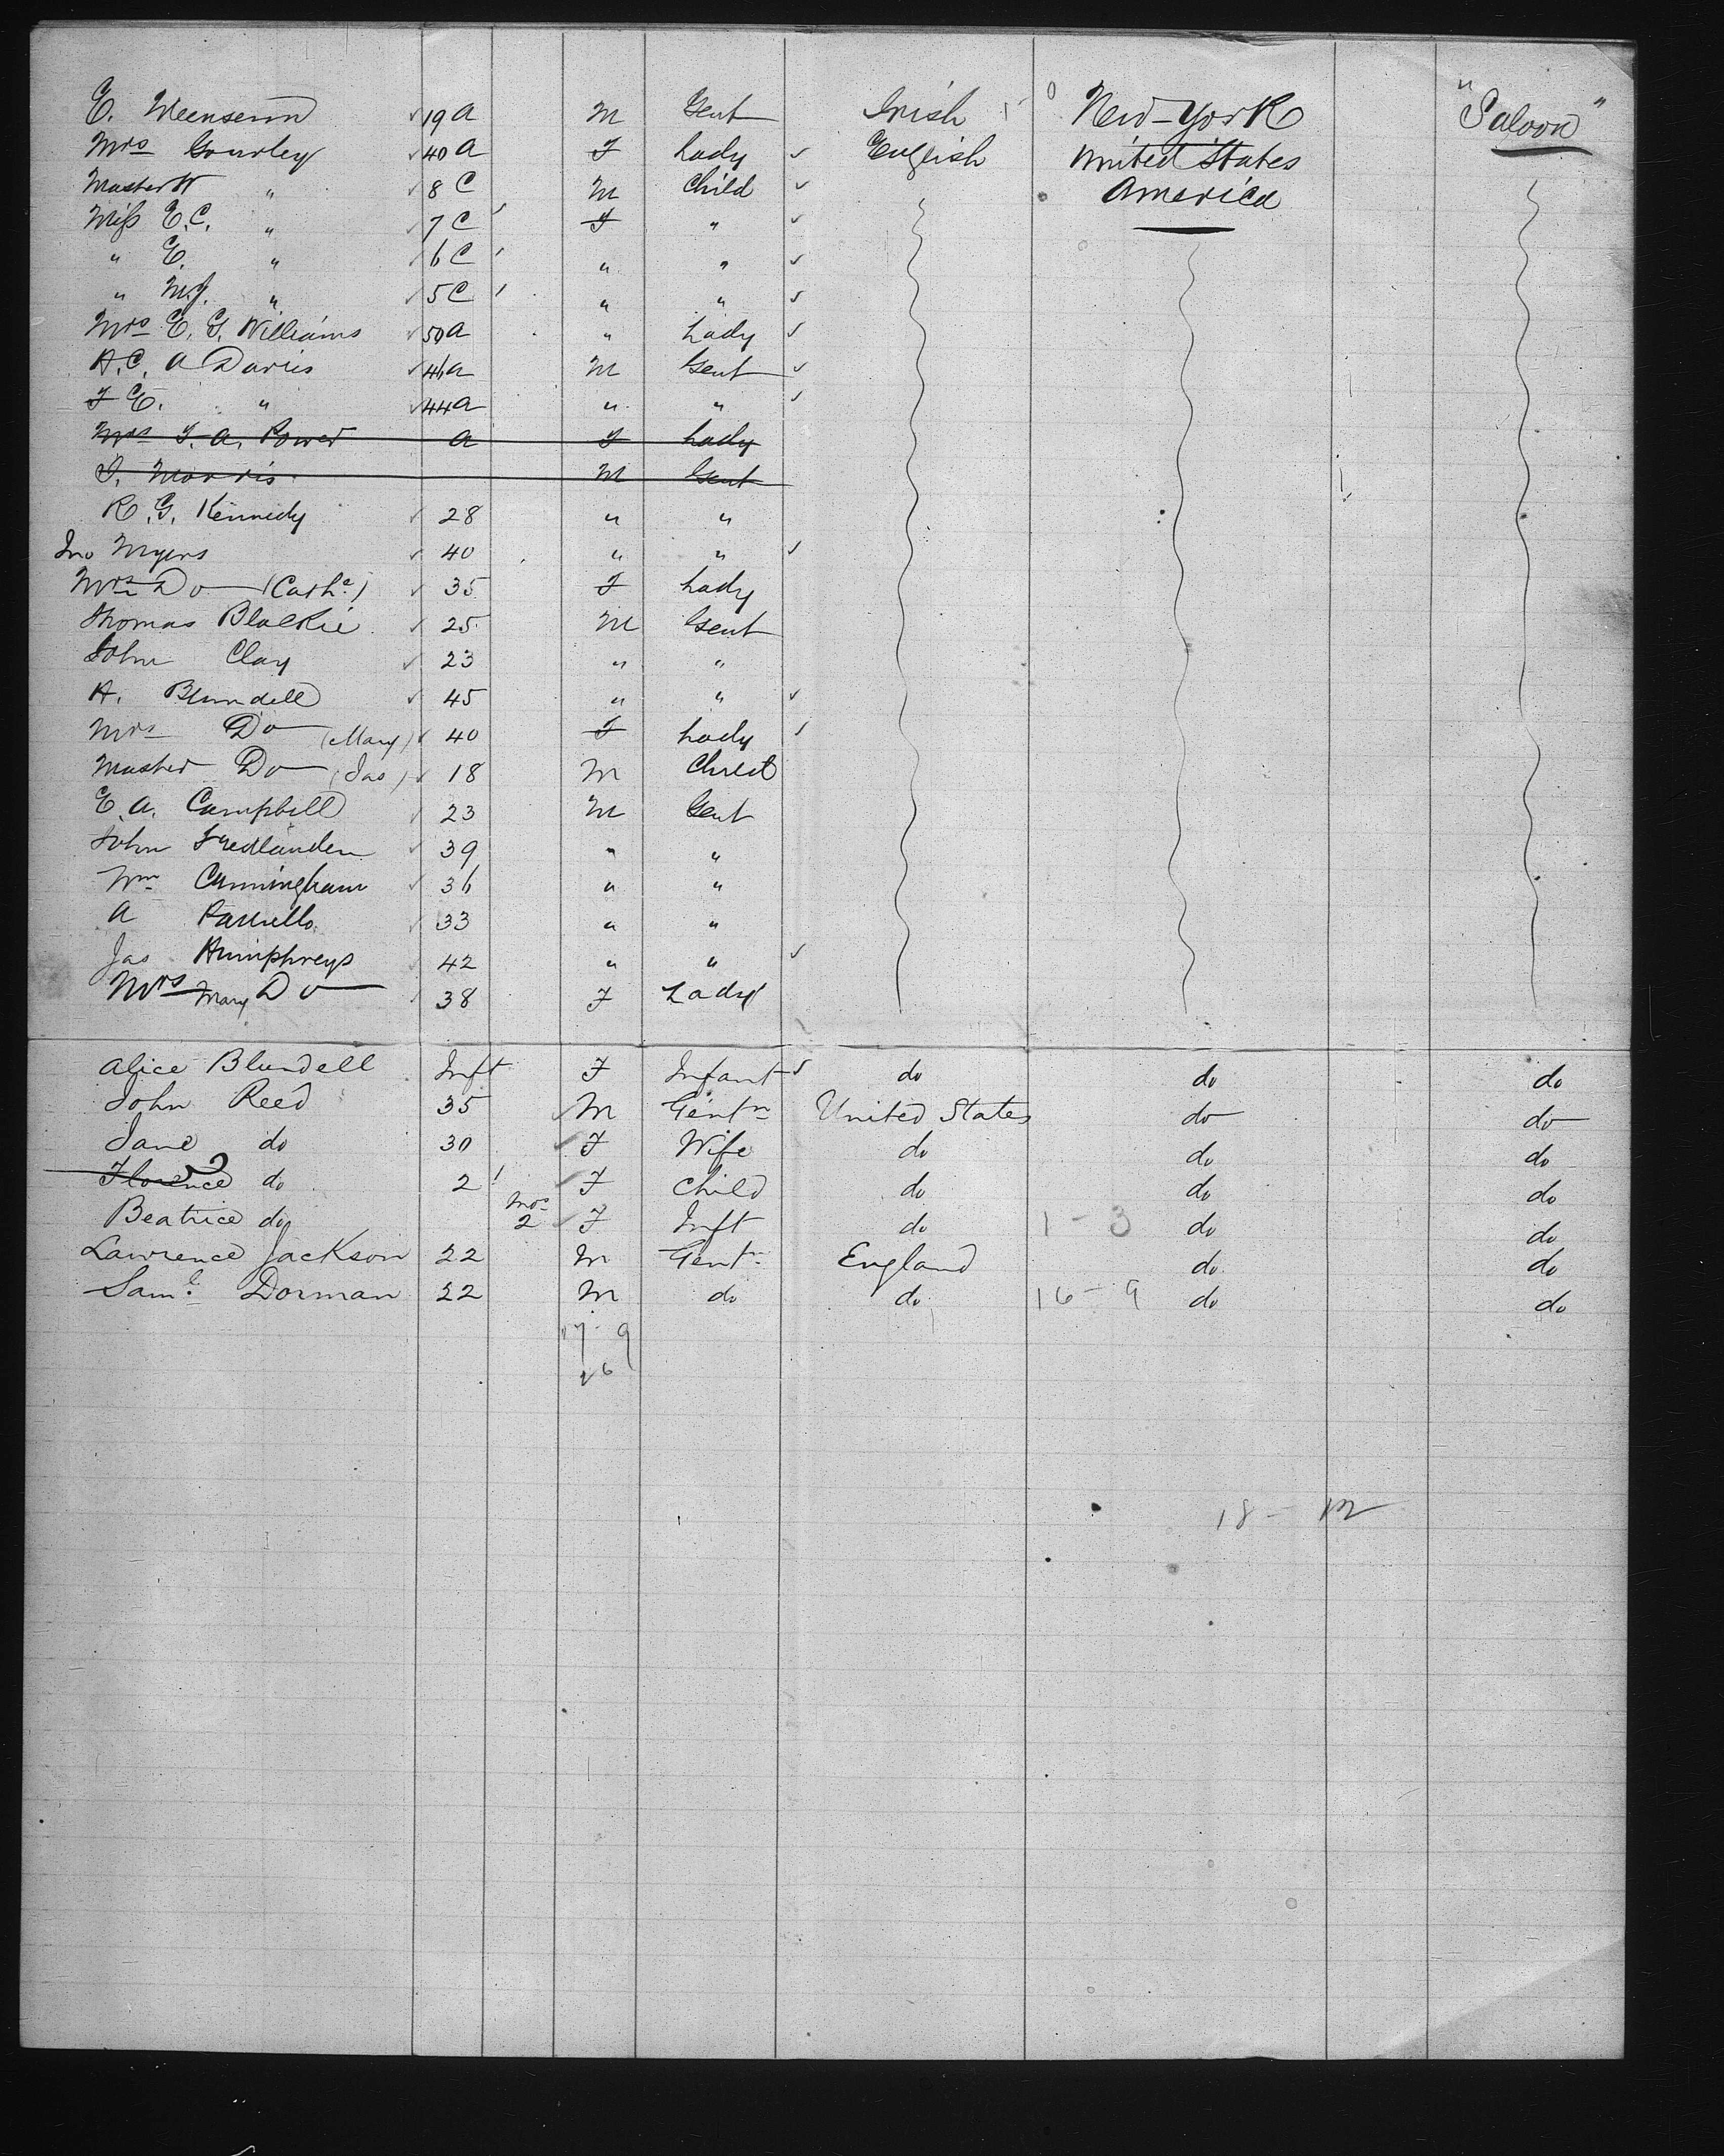 E. 19 A M Gent Irish New-York "Saloon"
Mrs Gourley 40 A F Lady English United States
Master W " 8 C M Child America
Miss E.C. " 7 C F "
" E. " 6 C " "
" M.J. " 5 C " "
Mrs E. G. Williams 50 A " Lady
H.C. A Davies 46 A M Gent
F E. " 44 A " "
Mrs T. A. Power A F Lady
J. Morris M Gent
R. G. Kennedy 28 " "
Jno Myers 40 " "
Mrs Do (Cathe) 35 F Lady
Thomas Blackie 25 M Gent
John Clay 23 " "
H. Blundell 45 " "
Mrs Do (Mary) 40 F Lady
Master Do (Jas) 18 M Child
E. A. Campbell 23 M Gent
John Fredlanden 39 " "
Wm Cunningham 36 " "
A 33 " "
Jas Humphreys 42 " "
Mrs Mary Do 38 F Lady
Alice Blundell Inft F Infant do do do
John Reed 35 M Gentn United States do do
Jane do 30 F Wife do do do
Florence do 2 F Child do do do
Beatrice do Mos 2 F Inft do 1 - 3 do do
Lawrence Jackson 22 M Gentn England do do
Saml Dorman 22 M do do 16 - 9 do do
17 - 9
26
18 - 12